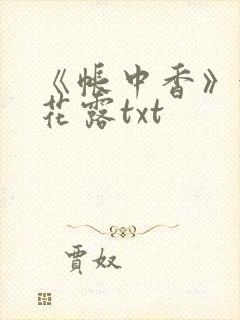 《帐中香》
花露txt
贾奴